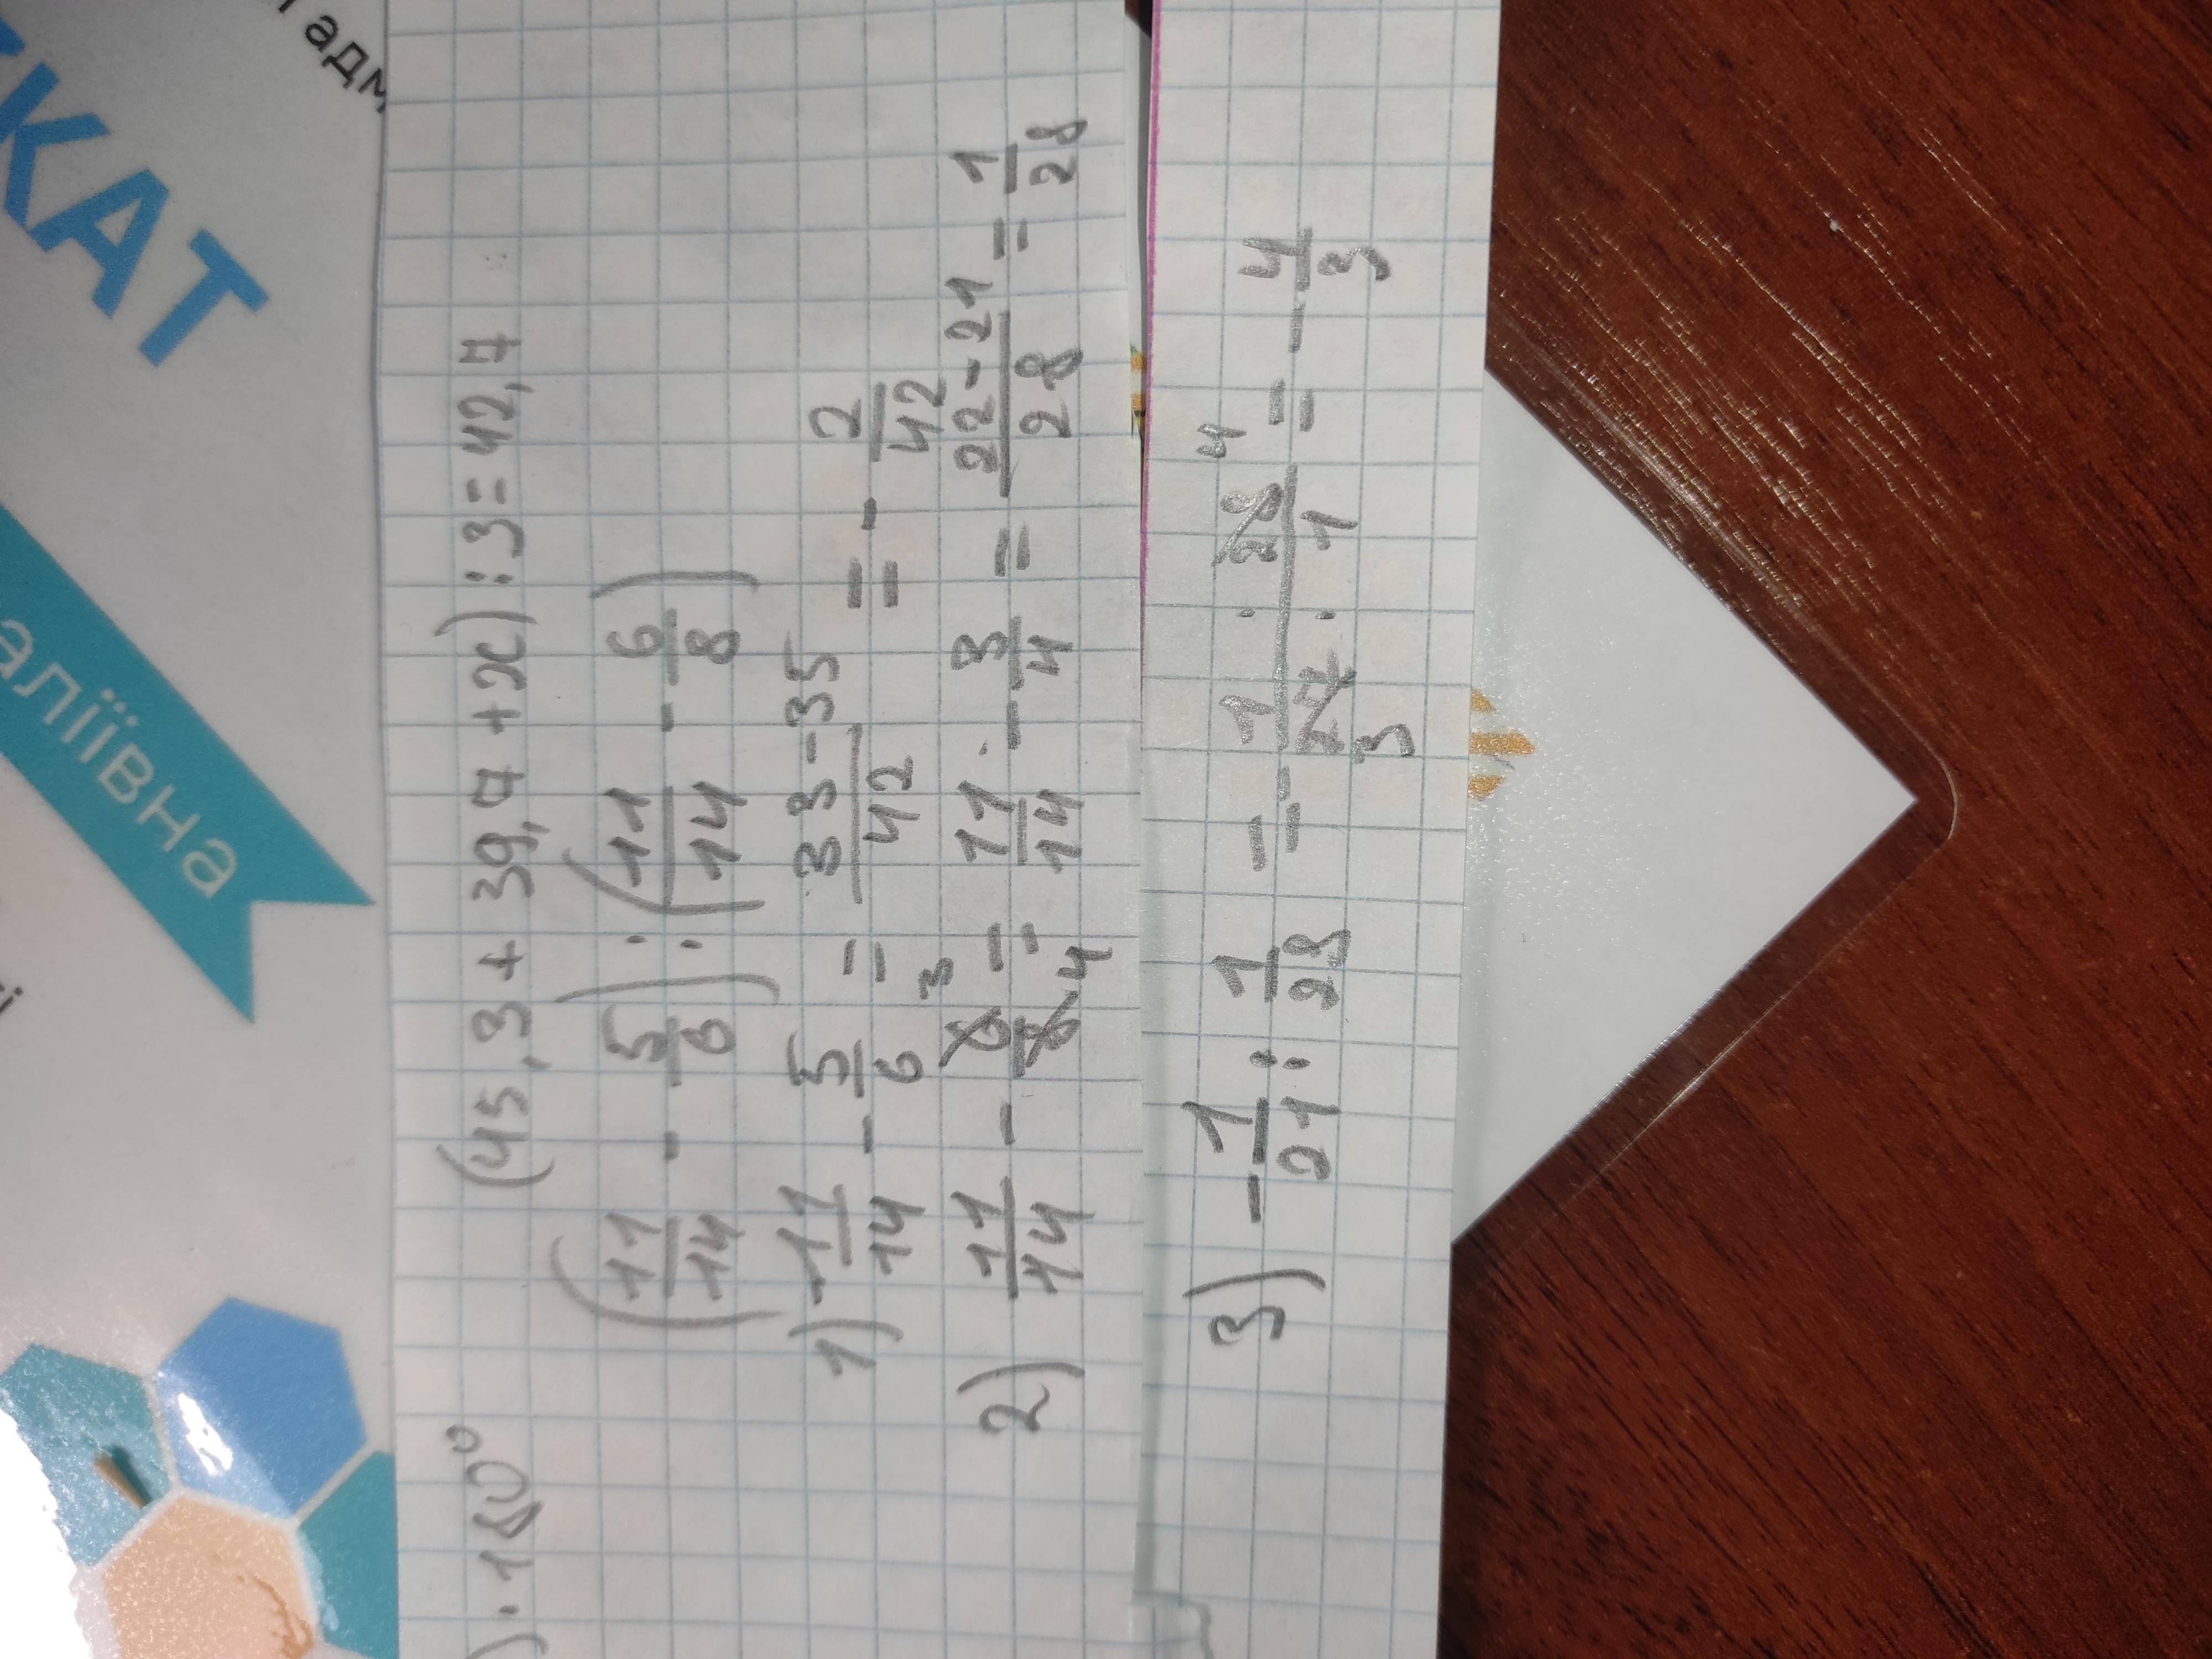 адм
КАТ
аліївна
(45,3 + 39,7 + x) : 3 = 42,7
) · 180°
(11/14 - 5/6) : (11/14 - 6/8)
1) 11/14 - 5/6 = 33-35/42 = - 2/42
2) 11/14 - 6/8 3/4 = 11/14 - 3/4 = 22-21/28 = 1/28
3) - 1/21 : 1/28 = - 1 · 28 4/21 · 1 3 = - 4/3